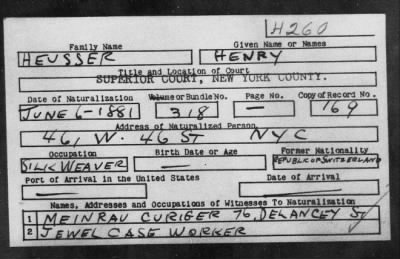 H260
Family Name Given Name or Names
HEUSSER HENRY
Title and Location of Court
SUPERIOR COURT, NEW YORK COUNTY.
Date of Naturalization Volume or Bundle No. Page No. Copy of Record No.
JUNE 6-1881 318 — 169
Address of Naturalized Person
461 W. 46 ST NYC
Occupation Birth Date or Age Former Nationality
SILK WEAVER — REPUBLIC OF SWITZERLAND
Port of Arrival in the United States Date of Arrival
— —
Names, Addresses and Occupations of Witnesses To Naturalization
1 MEINRAU CURIGER 76, DELANCEY St
2 JEWEL CASE WORKER